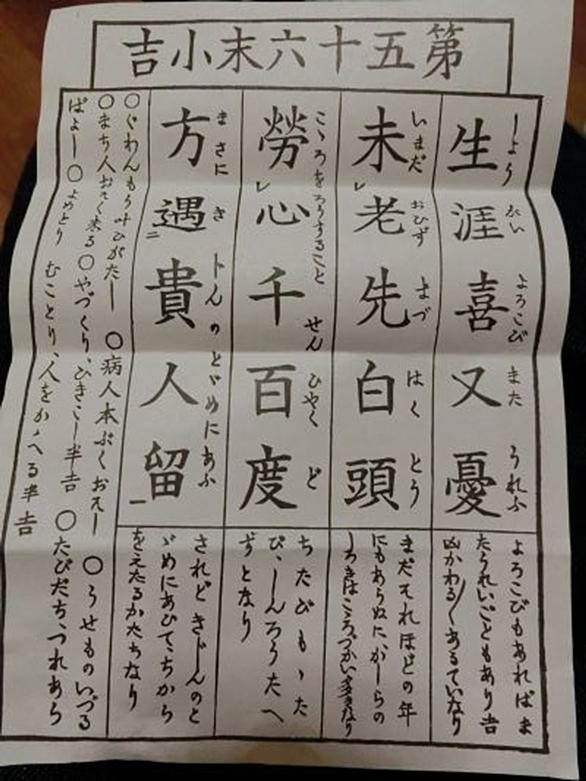 第五十六末小吉
生涯喜又憂
しよう がい よろこび また うれふ
よろこびもあればま
たうれいごともあり吉
凶かわる〴〵あるていなり
未レ老先白頭
いまだ おひず まづ はく とう
まだそれほどの年
にもあらぬにかしらの
しろきはこゝろづかい多きなり
勞レ心千百度
こゝろをろうすること せん ひやく ど
ちたびもゝた
びしんろうたへ
ずとなり
方遇二貴人留一
まさに き にんのとゞめにあふ
されどきじんのと
ゞめにあひてちから
をえたるかたちなり
〇ぐわんもう叶ひがたし 〇病人本ぷくおそし 〇うせものいづる
〇まち人おそく来る 〇やづくり、ひきこし半吉 〇たびだち、つれあら
ばよし 〇よめとり むことり、人をかゝへる半吉